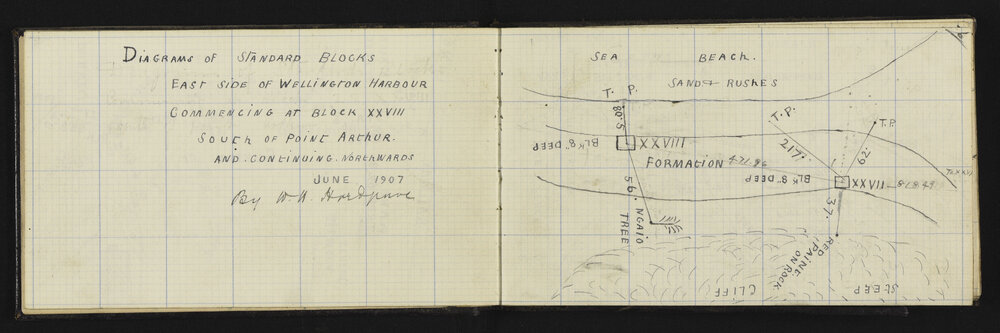 DIAGRAMS of STANDARD BLOCKS
EAST SIDE OF WELLINGTON HARBOUR
COMMENCING AT BLOCK XXVIII
SOUTH OF POINT ARTHUR.
AND. CONTINUING. NORTHWARDS
JUNE 1907
By W. H. Hardgrave
SEA BEACH.
SAND & RUSHES
T. P.
80.5
T. P.
T. P.
217.
62.
BLK 8" DEEP
XXVIII
FORMATION
BLK 8" DEEP
XXVII
To XXVI
56.
NGAIO
TREE
37.
RED
PAINT
ON ROCK
CLIFF
STEEP